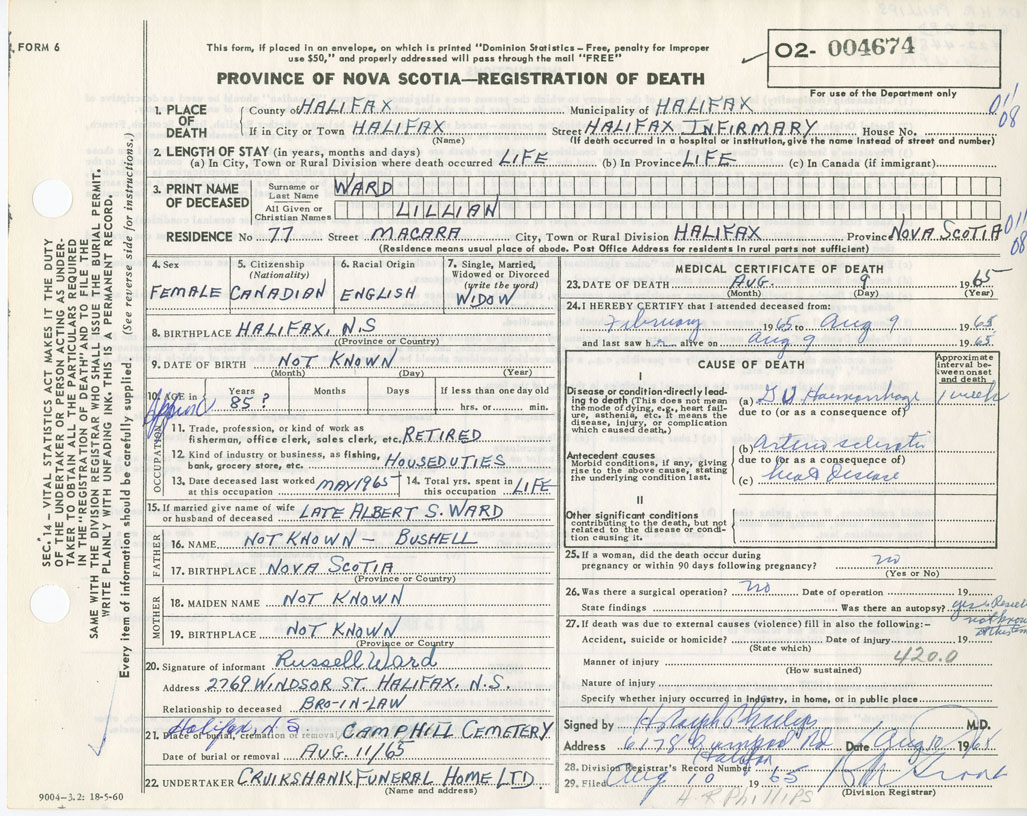 FORM 6
This form, if placed in an envelope, on which is printed "Dominion Statistics – Free, penalty for improper
use $50," and properly addressed will pass through the mail "FREE"
PROVINCE OF NOVA SCOTIA—REGISTRATION OF DEATH
02- 004674
For use of the Department only
011
08
1. PLACE OF DEATH
County of HALIFAX Municipality of HALIFAX
If in City or Town HALIFAX Street HALIFAX INFIRMARY House No.
(Name) (If death occurred in a hospital or institution, give the name instead of street and number)
2. LENGTH OF STAY (in years, months and days)
(a) In City, Town or Rural Division where death occurred LIFE (b) In Province LIFE (c) In Canada (if immigrant)
3. PRINT NAME OF DECEASED
Surname or Last Name WARD
All Given or Christian Names LILLIAN
RESIDENCE No 77 Street MACARA City, Town or Rural Division HALIFAX Province NOVA SCOTIA
011
08
(Residence means usual place of abode. Post Office Address for residents in rural parts not sufficient)
4. Sex FEMALE
5. Citizenship (Nationality) CANADIAN
6. Racial Origin ENGLISH
7. Single, Married, Widowed or Divorced (write the word) WIDOW
8. BIRTHPLACE HALIFAX, N.S
(Province or Country)
9. DATE OF BIRTH NOT KNOWN
(Month) (Day) (Year)
10. AGE in Years Months Days If less than one day old
85 ? hrs. or min.
OCCUPATION
11. Trade, profession, or kind of work as
fisherman, office clerk, sales clerk, etc. RETIRED
12. Kind of industry or business, as fishing,
bank, grocery store, etc. HOUSEDUTIES
13. Date deceased last worked at this occupation MAY 1965
14. Total yrs. spent in this occupation LIFE
15. If married give name of wife
or husband of deceased LATE ALBERT S. WARD
FATHER
16. NAME NOT KNOWN – BUSHELL
17. BIRTHPLACE NOVA SCOTIA
(Province or Country)
MOTHER
18. MAIDEN NAME NOT KNOWN
19. BIRTHPLACE NOT KNOWN
(Province or Country
20. Signature of informant Russell Ward
Address 2769 WINDSOR ST. HALIFAX, N.S.
Relationship to deceased BRO-IN-LAW
Halifax, N.S
21. Place of burial, cremation or removal CAMP HILL CEMETERY
Date of burial or removal AUG. 11/65
22. UNDERTAKER CRUIKSHANK FUNERAL HOME LTD.
(Name and address)
MEDICAL CERTIFICATE OF DEATH
23. DATE OF DEATH AUG. 9 1965
(Month) (Day) (Year)
24. I HEREBY CERTIFY that I attended deceased from:
February 1965 to Aug 9 1965
and last saw her alive on Aug 9 1965
CAUSE OF DEATH
Approximate interval between onset and death
I
Disease or condition directly leading to death (This does not mean the mode of dying, e.g., heart failure, asthenia, etc. It means the disease, injury, or complication which caused death.)
(a) G I Haemorrhage 1 week
due to (or as a consequence of)
Antecedent causes
Morbid conditions, if any, giving rise to the above cause, stating the underlying condition last.
(b) Arterio sclerotic
due to (or as a consequence of)
(c) heart disease
II
Other significant conditions
contributing to the death, but not related to the disease or condition causing it.
25. If a woman, did the death occur during
pregnancy or within 90 days following pregnancy? no
(Yes or No)
26. Was there a surgical operation? no Date of operation 19
State findings Was there an autopsy? yes
27. If death was due to external causes (violence) fill in also the following:–
not known
Accident, suicide or homicide? Date of injury 19
(State which)
420.0
Manner of injury
(How sustained)
Nature of injury
Specify whether injury occurred in industry, in home, or in public place
Signed by H Ralph Phillips M.D.
Address 6178 Rd Date Aug 10 1965
Halifax
28. Division Registrar's Record Number
29. Filed Aug 10 1965
(Division Registrar)
H R PHILLIPS
SEC. 14 – VITAL STATISTICS ACT MAKES IT THE DUTY
OF THE UNDERTAKER OR PERSON ACTING AS UNDER-
TAKER TO OBTAIN ALL THE PARTICULARS REQUIRED
IN THE "REGISTRATION OF DEATH" AND TO FILE THE
SAME WITH THE DIVISION REGISTRAR WHO SHALL ISSUE THE BURIAL PERMIT.
WRITE PLAINLY WITH UNFADING INK. THIS IS A PERMANENT RECORD.
Every item of information should be carefully supplied. (See reverse side for instructions.)
9004–3.2: 18-5-60